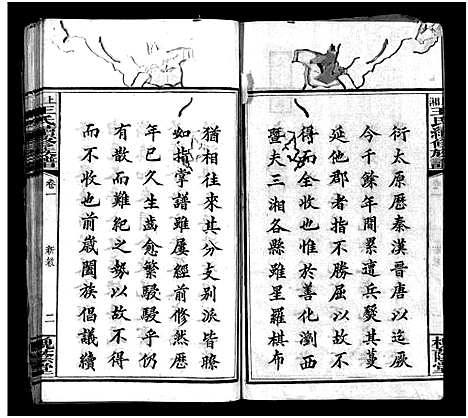 衍太原歷秦漢晉唐以迄厥
千餘年間累遭兵燹其
延他郡者指不勝屈以故不
得而全收於善化瀏西
暨夫三湘各縣雖星羅棋布
猶相往來其分支别派皆瞭
如指掌譜雖屢經前修然歷
年已久生齒愈繁駸駸乎
有散而難紀之勢以故不得
而不收也前歲闔族倡議續
王氏續修族譜
卷一
新敘
二
槐蔭堂